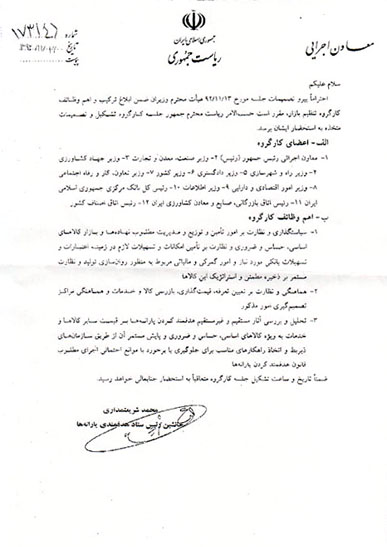 جمهوری اسلامی ایران
ریاست جمهوری
معاون اجرایی
شماره ۱۷۳۱۴۶
تاریخ
پیوست
سلام علیکم
احتراماً پیرو تصمیمات جلسه مورخ ۹۲/۱۱/۱۳ هیأت محترم وزیران ضمن ابلاغ ترکیب و اهم وظائف
کارگروه تنظیم بازار، مقرر است حسب‌الامر ریاست محترم جمهور جلسه کارگروه تشکیل و تصمیمات
متخذه به استحضار ایشان برسد.
الف- اعضای کارگروه
۱- معاون اجرائی رئیس جمهور (رئیس) ۲- وزیر صنعت، معدن و تجارت ۳- وزیر جهاد کشاورزی
۴- وزیر راه و شهرسازی ۵- وزیر دادگستری ۶- وزیر کشور ۷- وزیر تعاون، کار و رفاه اجتماعی
۸- وزیر امور اقتصادی و دارایی ۹- وزیر اطلاعات ۱۰- رئیس کل بانک مرکزی جمهوری اسلامی
ایران ۱۱- رئیس اتاق بازرگانی، صنایع و معادن کشاورزی ایران ۱۲- رئیس اتاق اصناف کشور
ب- اهم وظائف کارگروه
۱- سیاستگذاری و نظارت بر امور تأمین و توزیع و مدیریت مطلوب نهاده‌ها و بازار کالاهای
اساسی، حساس و ضروری و نظارت بر تأمین امکانات و تسهیلات لازم در زمینه اعتبارات و
تسهیلات بانکی مورد نیاز و امور گمرکی و مالیاتی مربوط به منظور روان‌سازی تولید و نظارت
مستمر بر ذخیره مطمئن و استراتژیک این کالاها
۲- هماهنگی و نظارت بر تعیین تعرفه، قیمت‌گذاری، بازرسی کالا و خدمات و هماهنگی مراکز
تصمیم‌گیری امور مذکور
۳- تحلیل و بررسی آثار مستقیم و غیرمستقیم هدفمند کردن یارانه‌ها بر قیمت سایر کالاها و
خدمات به ویژه کالاهای اساسی، حساس و ضروری و پایش مستمر آن از طریق سازمان‌های
ذیربط و اتخاذ راهکارهای مناسب برای جلوگیری یا برخورد با موانع احتمالی اجرای مطلوب
قانون هدفمند کردن یارانه‌ها
ضمناً تاریخ و ساعت تشکیل جلسه کارگروه متعاقباً به استحضار جنابعالی خواهد رسید.
محمد شریعتمداری
جانشین رئیس ستاد هدفمندی یارانه‌ها